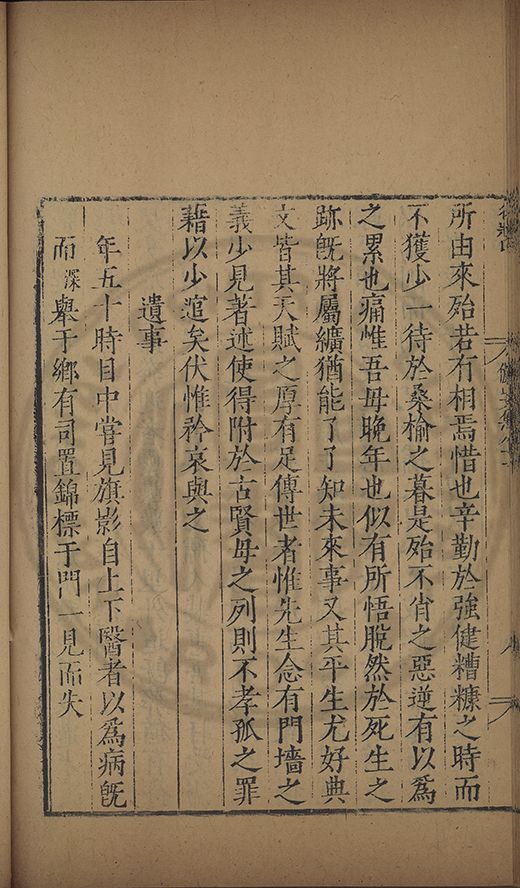 所由來殆若有相焉惜也辛勤於強健糟糠之時而
不獲少一待於桑榆之暮是殆不肖之惡逆有以爲
之累也痛惟吾母晚年也似有所悟脫然於死生之
跡旣將屬纊猶能了了知未來事又其平生尤好典
文皆其天賦之厚有足傳世者惟先生念有門墻之
義少見著述使得附於古賢母之列則不孝孤之罪
藉以少逭矣伏惟矜哀與之
遺事
年五十時目中嘗見旗影自上下醫者以爲病旣
而深舉于鄉有司置錦標于門一見而失